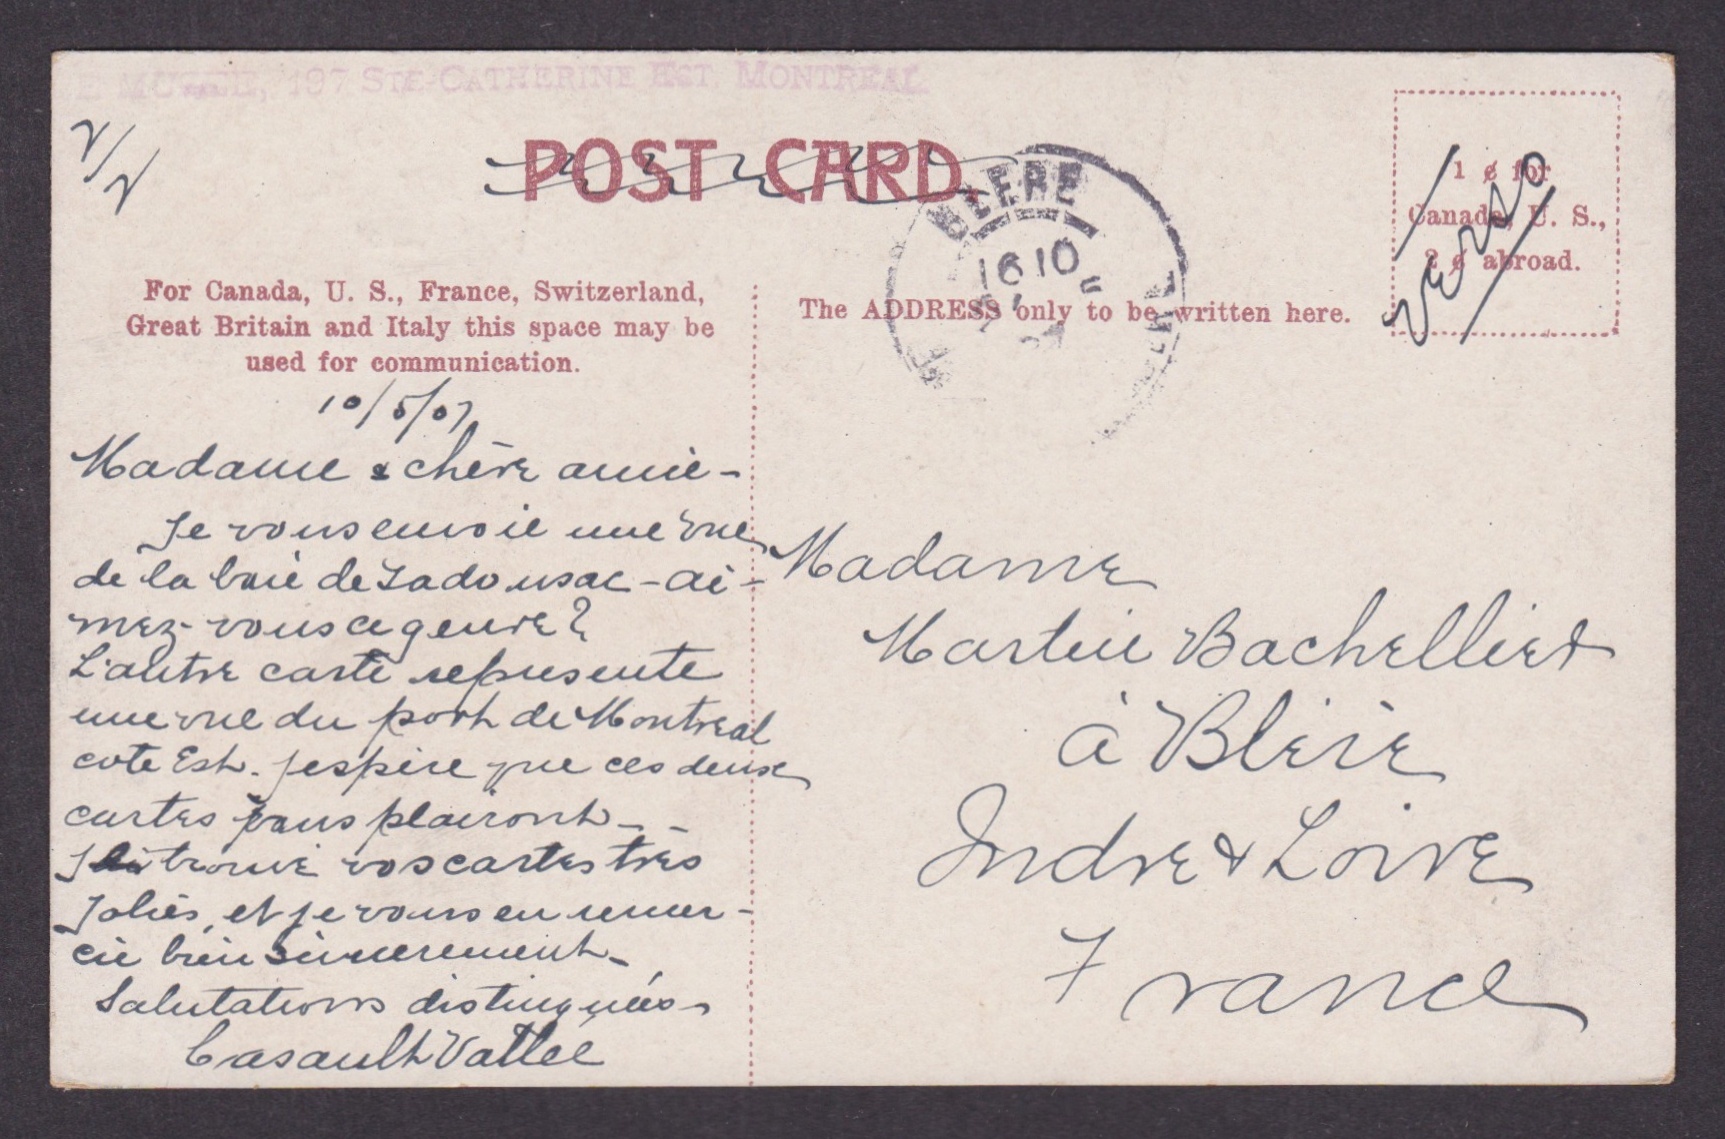 197 STE CATHERINE EST. MONTREAL
2/2
POST CARD.
BLÉRÉ
16 10
1 ¢ for
Canada, U. S.,
2 ¢ abroad.
verso
For Canada, U. S., France, Switzerland,
Great Britain and Italy this space may be
used for communication.
The ADDRESS only to be written here.
10/5/07
Madame & chère amie -
Je vous envoie une vue
de la baie de Tadousac - ai-
mez-vous ce genre?
L'autre carte represente
une vue du port de Montreal
cote Est. J'espère que ces deux
cartes vous plairont -
J'ai trouvé vos cartes très
Jolies, et je vous en remer-
cie bien sincerement -
Salutations distinguées -
Casault Vallee
Madame
Martin Bachellier
à Bléré
Indre & Loire
France